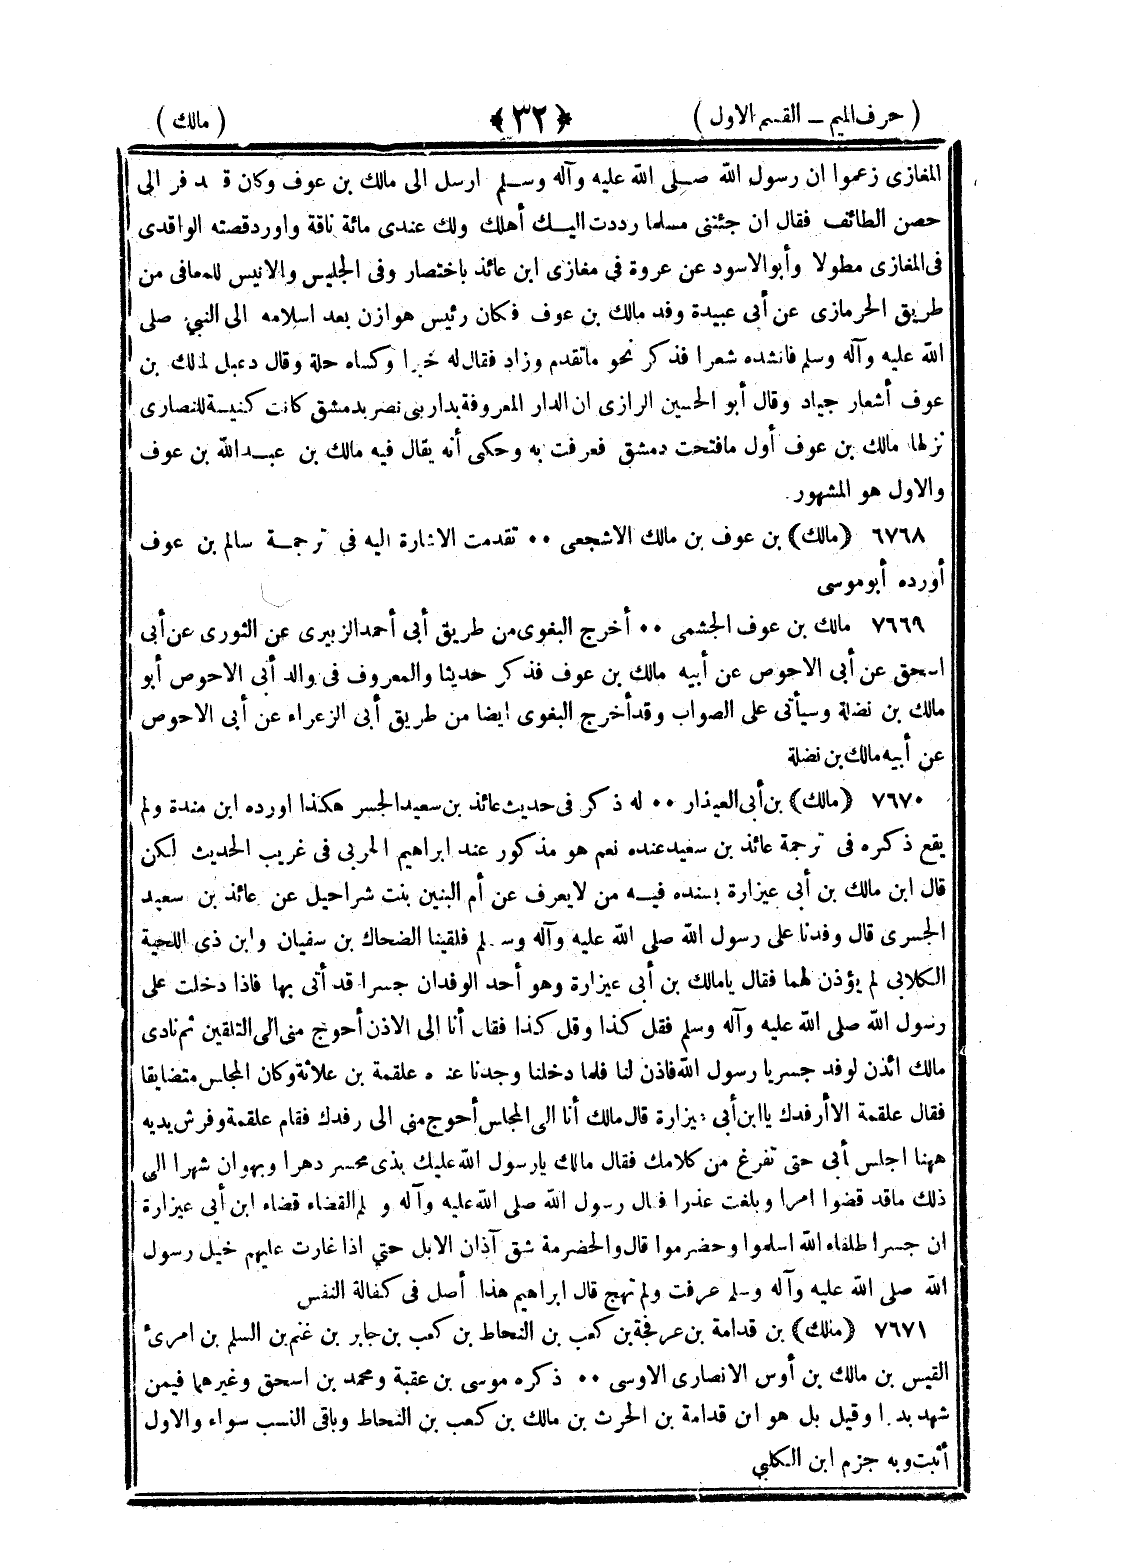 ( حرف الميم – القسم الاول ) ﴿ ٣٢ ﴾ ( مالك )
المغازى زعموا ان رسول الله صلى الله عليه وآله وسلم ارسل الى مالك بن عوف وكان قد فر الى
حصن الطائف فقال ان جئتنى مسلما رددت اليك أهلك ولك عندى مائة ناقة واورد قصته الواقدى
فى المغازى مطولا وأبو الاسود عن عروة فى مغازى ابن عائذ باختصار وفى الجليس والانيس للمعافى من
طريق الحرمازى عن أبى عبيدة وفد مالك بن عوف فكان رئيس هوازن بعد اسلامه الى النبى صلى
الله عليه وآله وسلم فانشده شعرا فذكر نحو ماتقدم وزاد فقال له خيرا وكساه حلة وقال دعبل لمالك بن
عوف أشعار جياد وقال أبو الحسين الرازى ان الدار المعروفة بدار بنى نصر بدمشق كانت كنيسة للنصارى
نزلها مالك بن عوف أول مافتحت دمشق فعرفت به وحكى أنه يقال فيه مالك بن عبد الله بن عوف
والاول هو المشهور
٦٧٦٨ (مالك) بن عوف بن مالك الاشجعى ٠٠ تقدمت الاشارة اليه فى ترجمة سالم بن عوف
أورده أبو موسى
٧٦٦٩ مالك بن عوف الجشمى ٠٠ أخرج البغوى من طريق أبى أحمد الزبيرى عن الثورى عن أبى
اسحق عن أبى الاحوص عن أبيه مالك بن عوف فذكر حديثا والمعروف فى والد أبى الاحوص أبو
مالك بن نضلة وسيأتى على الصواب وقد أخرج البغوى ايضا من طريق أبى الزعراء عن أبى الاحوص
عن أبيه مالك بن نضلة
٧٦٧٠ (مالك) بن أبى العيذار ٠٠ له ذكر فى حديث عائذ بن سعيد الجسر هكذا اورده ابن مندة ولم
يقع ذكره فى ترجمة عائذ بن سعيد عنده نعم هو مذكور عند ابراهيم الحربى فى غريب الحديث لكن
قال ابن مالك بن أبى عيزارة بسنده فيه من لايعرف عن أم البنين بنت شراحيل عن عائذ بن سعيد
الجسرى قال وفدنا على رسول الله صلى الله عليه وآله وسلم فلقينا الضحاك بن سفيان وابن ذى اللحية
الكلابى لم يؤذن لهما فقال يامالك بن أبى عيزارة وهو أحد الوفدان جسرا قد أتى بها فاذا دخلت على
رسول الله صلى الله عليه وآله وسلم فقل كذا وقل كذا فقال أنا الى الاذن أحوج منى الى التلقين ثم نادى
مالك ائذن لوفد جسر يا رسول الله فاذن لنا فلما دخلنا وجدنا عنده علقمة بن علاثة وكان المجلس متضايقا
فقال علقمة الا أرفدك ياابن أبى عيزارة قال مالك أنا الى المجلس أحوج منى الى رفدك فقام علقمة وفرش يديه
ههنا اجلس أبى حتى تفرغ من كلامك فقال مالك يارسول الله عليك بذى محسر دهرا وبهوان شهرا الى
ذلك ماقد قضوا امرا وبلغت عذرا فقال رسول الله صلى الله عليه وآله وسلم القضاء قضاء ابن أبى عيزارة
ان جسرا طلفاء الله اسلموا وحضرموا قال والحضرمة شق آذان الابل حتى اذا غارت عليهم خيل رسول
الله صلى الله عليه وآله وسلم عرفت ولم تهج قال ابراهيم هذا أصل فى كفالة النفس
٧٦٧١ (مالك) بن قدامة بن عرفجة بن كعب بن النحاط بن كعب بن جابر بن غنم بن السلم بن امرئ
القيس بن مالك بن أوس الانصارى الاوسى ٠٠ ذكره موسى بن عقبة ومحمد بن اسحق وغيرهما فيمن
شهد بدرا وقيل بل هو ابن قدامة بن الحرث بن مالك بن كعب بن النحاط وباقى النسب سواء والاول
أثبت وبه جزم ابن الكلبي